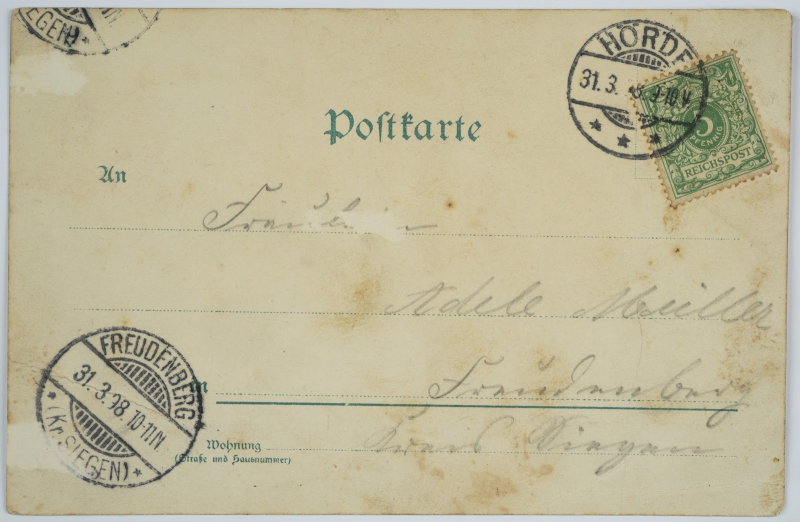 EGEN) *
HÖRDE
31.3. 9-10V.
* * *
5
PFENNIG
REICHSPOST
Postkarte
An
Fräulein
Adele Müller
in Freudenberg
Kreis Siegen
Wohnung
(Straße und Hausnummer)
FREUDENBERG
31.3.98.10-11N.
* (Kr. SIEGEN) *